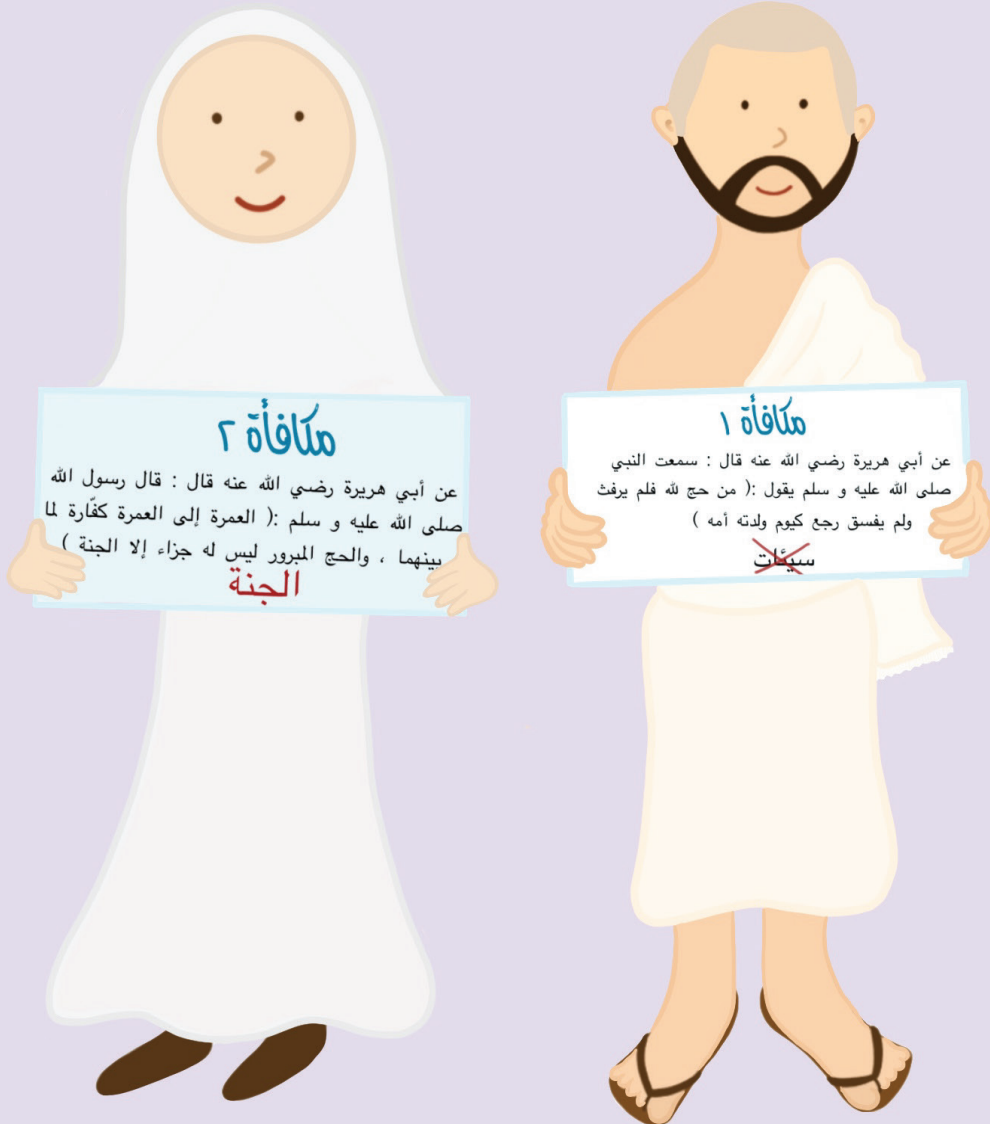 مكافأة ١
عن أبي هريرة رضي الله عنه قال : سمعت النبي
صلى الله عليه و سلم يقول :( من حج لله فلم يرفث
ولم يفسق رجع كيوم ولدته أمه )
سيئات
مكافأة ٢
عن أبي هريرة رضي الله عنه قال : قال رسول الله
صلى الله عليه و سلم :( العمرة إلى العمرة كفّارة لما
بينهما ، والحج المبرور ليس له جزاء إلا الجنة )
الجنة